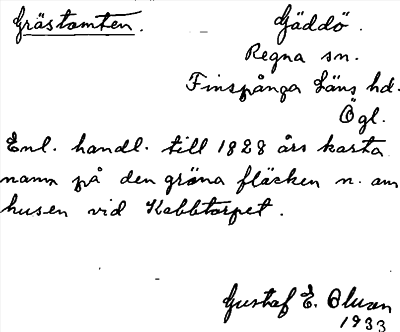 Grästomten.
Gäddö.
Regna sn.
Finspånga Läns hd.
Ögl.
Enl. handl. till 1828 års karta
namn på den gröna fläcken n. om
husen vid Kabbtorpet.
Gustaf E. Olwen
1933